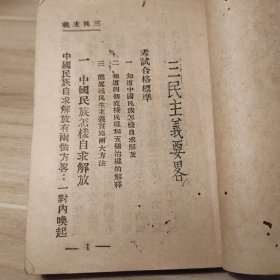 三民主義
三民主義要畧
考試合格標準
一 知道中國民族怎樣自求解放
二 知道四個直接民權和五個治權的解釋
三 能說民生主義實施兩大方法
一 中國民族怎樣自求解放
中國民族自求解放有兩個方畧：一對內喚起
1